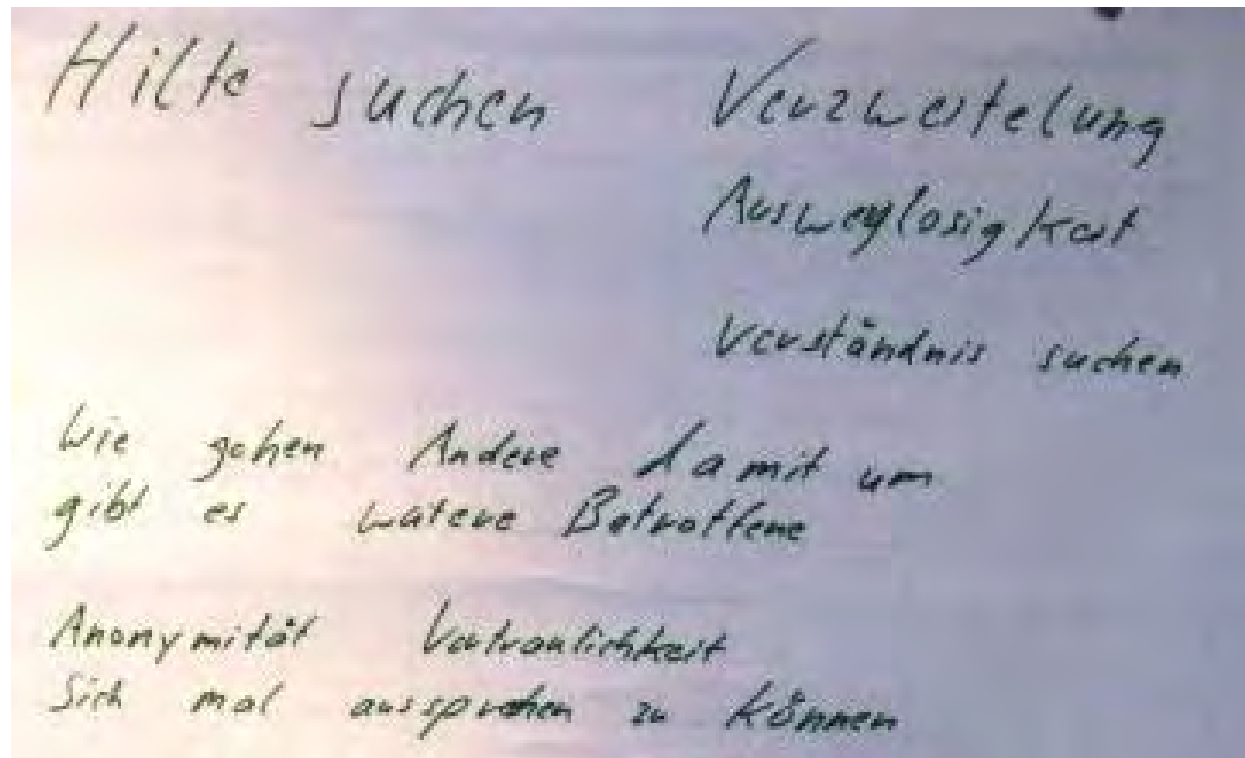 Hilfe suchen Verzweifelung
Ausweglosigkeit
Verständnis suchen
Wie gehen Andere damit um
gibt es weitere Betroffene
Anonymität Vertraulichkeit
Sich mal aussprechen zu können